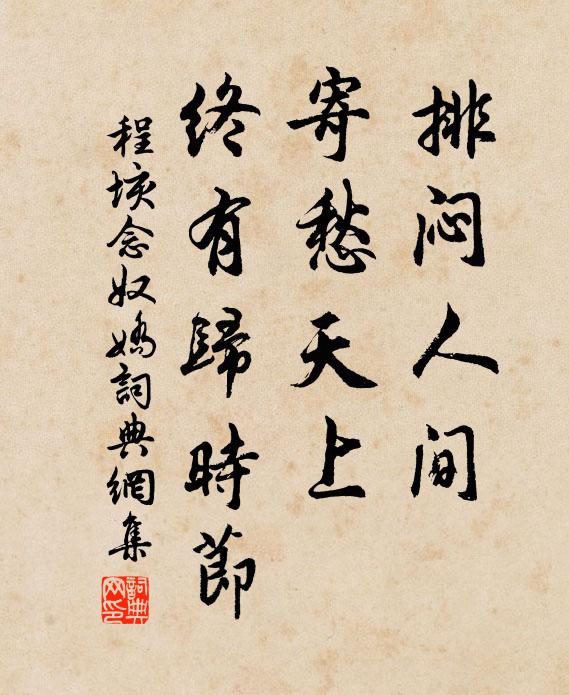 排闷人间
寄愁天上
终有歸時節
程垓念奴嬌詞典網集
詞典網印